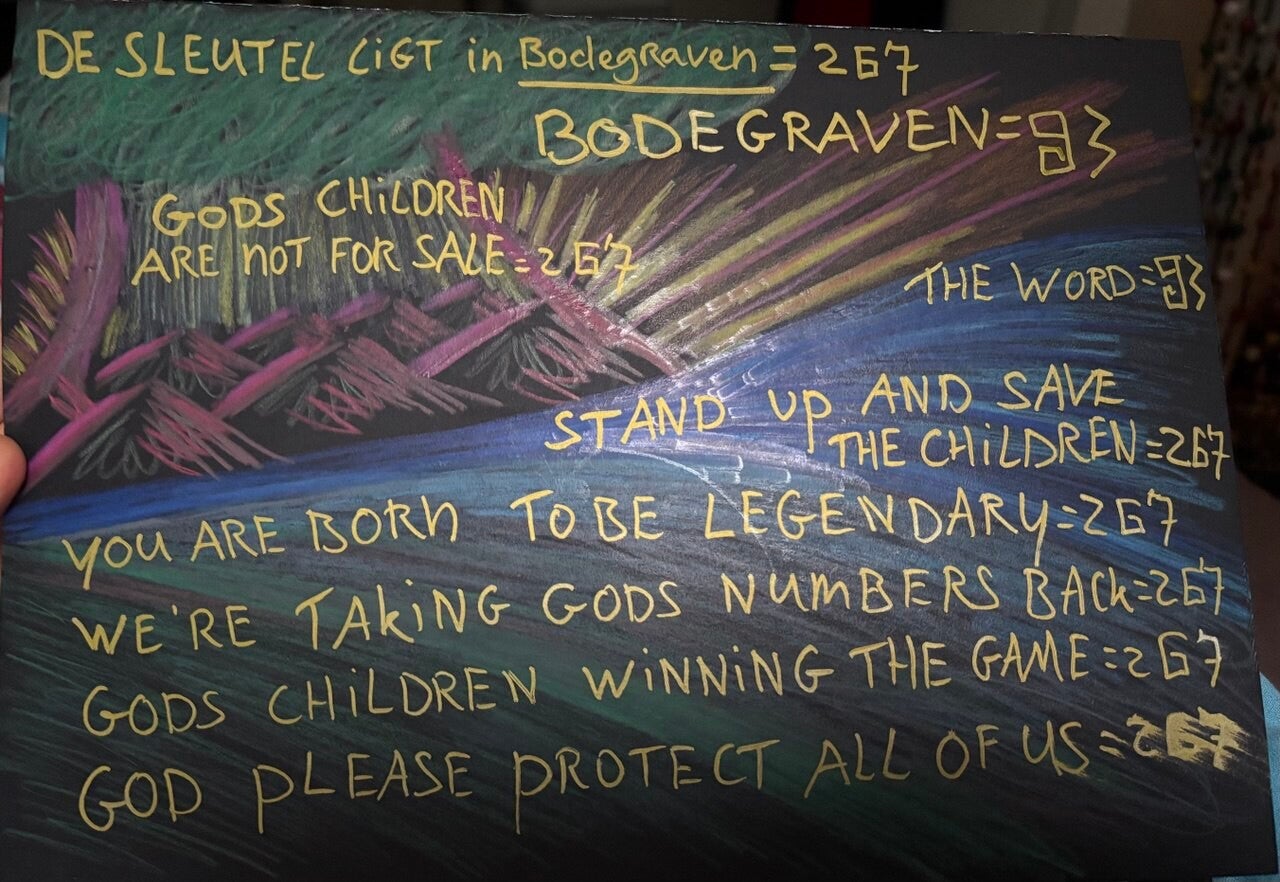 DE SLEUTEL LiGT in BodegRaven = 267
BODEGRAVEN=93
GODS CHiLDREN
ARE NOT FOR SALE=267
THE WORD=93
STAND Up AND SAVE
THE CHiLDREN=267
YOU ARE BORn TO BE LEGENDARY=267
WE'RE TAkiNG GODS NUMBERS BACk=267
GODS CHiLDREN WiNNiNG THE GAME=267
GOD pLEASE pROTECT ALL OF US=267